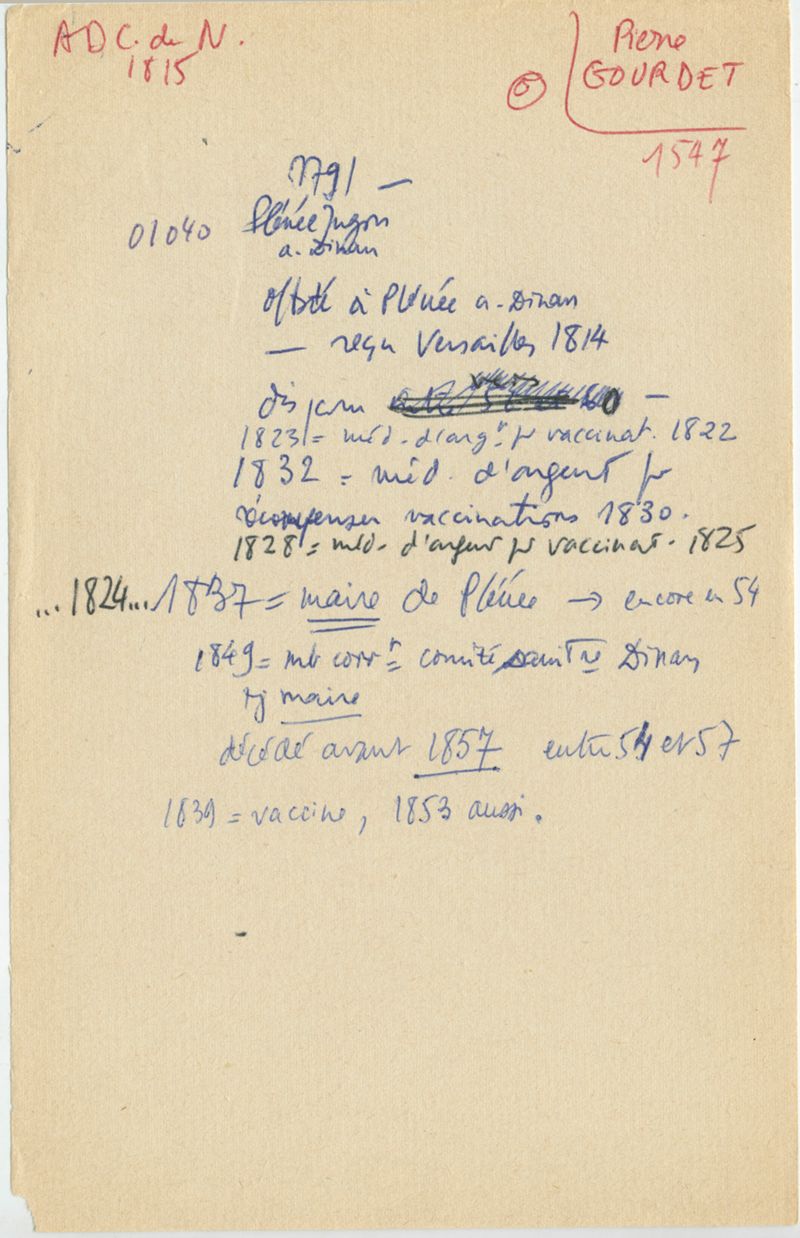 A D C. du N.
1815
Pierre
GOURDET
1547
1791 —
01040 Plénée Jugon
a. Dinan
à Plénée a. Dinan
— reçu Versailles 1814
disparu —
1823 = méd. d'argt pr vaccinat. 1822
1832 = méd. d'argent pr
récompenser vaccinations 1830.
1828 = méd. d'argent pr vaccinat. 1825
...1824...1837 = maire de Plénée → encore en 54
1849 = mb corrt comité sanitre Dinan
tj maire
décédé avant 1857 entre 54 et 57
1839 = vaccine, 1853 aussi.